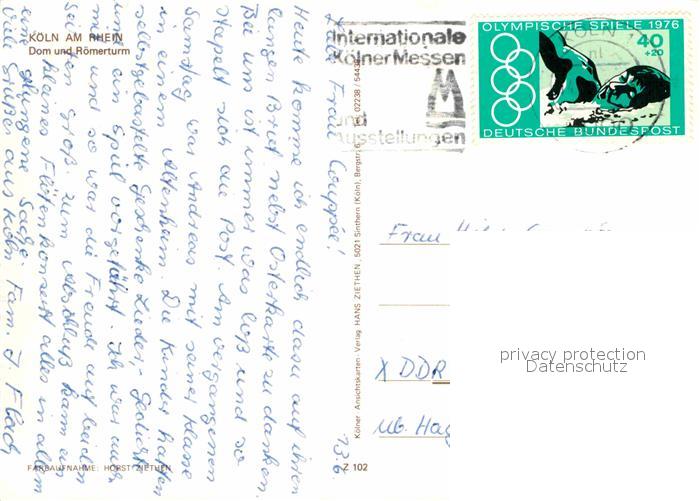 KÖLN AM RHEIN
Dom und Römerturm
Internationale
KölnerMessen
und
Ausstellungen
OLYMPISCHE SPIELE 1976
40
+20
DEUTSCHE BUNDESPOST
KÖLN
23.6.
Frau Couppée!
Heute komme ich endlich dazu auf ihren
Brief nebst Osterkarte zu danken.
Bei uns ist immer was los und so
stapelt sich die Post. Am vergangenen
Samstag war Andreas mit seiner Klasse
in einem Altenheim. Die Kinder hatten
selbstgebastelte Geschenke Lieder, Gedichte
und ein Spiel vorgeführt. Ich war auch
mit und so war die Freude auf beiden
Seiten groß. Zum Abschluß kam ein
kleines Flötenkonzert alles in allem
eine gelungene Sache.
Viele Grüße aus Köln Fam. J. Flach
Kölner Ansichtskarten-Verlag HANS ZIETHEN, 5021 Sinthern (Köln), Bergstr. 02238 / 5443
Frau
X DDR
privacy protection
Datenschutz
FARBAUFNAHME: HORST ZIETHEN
Z 102